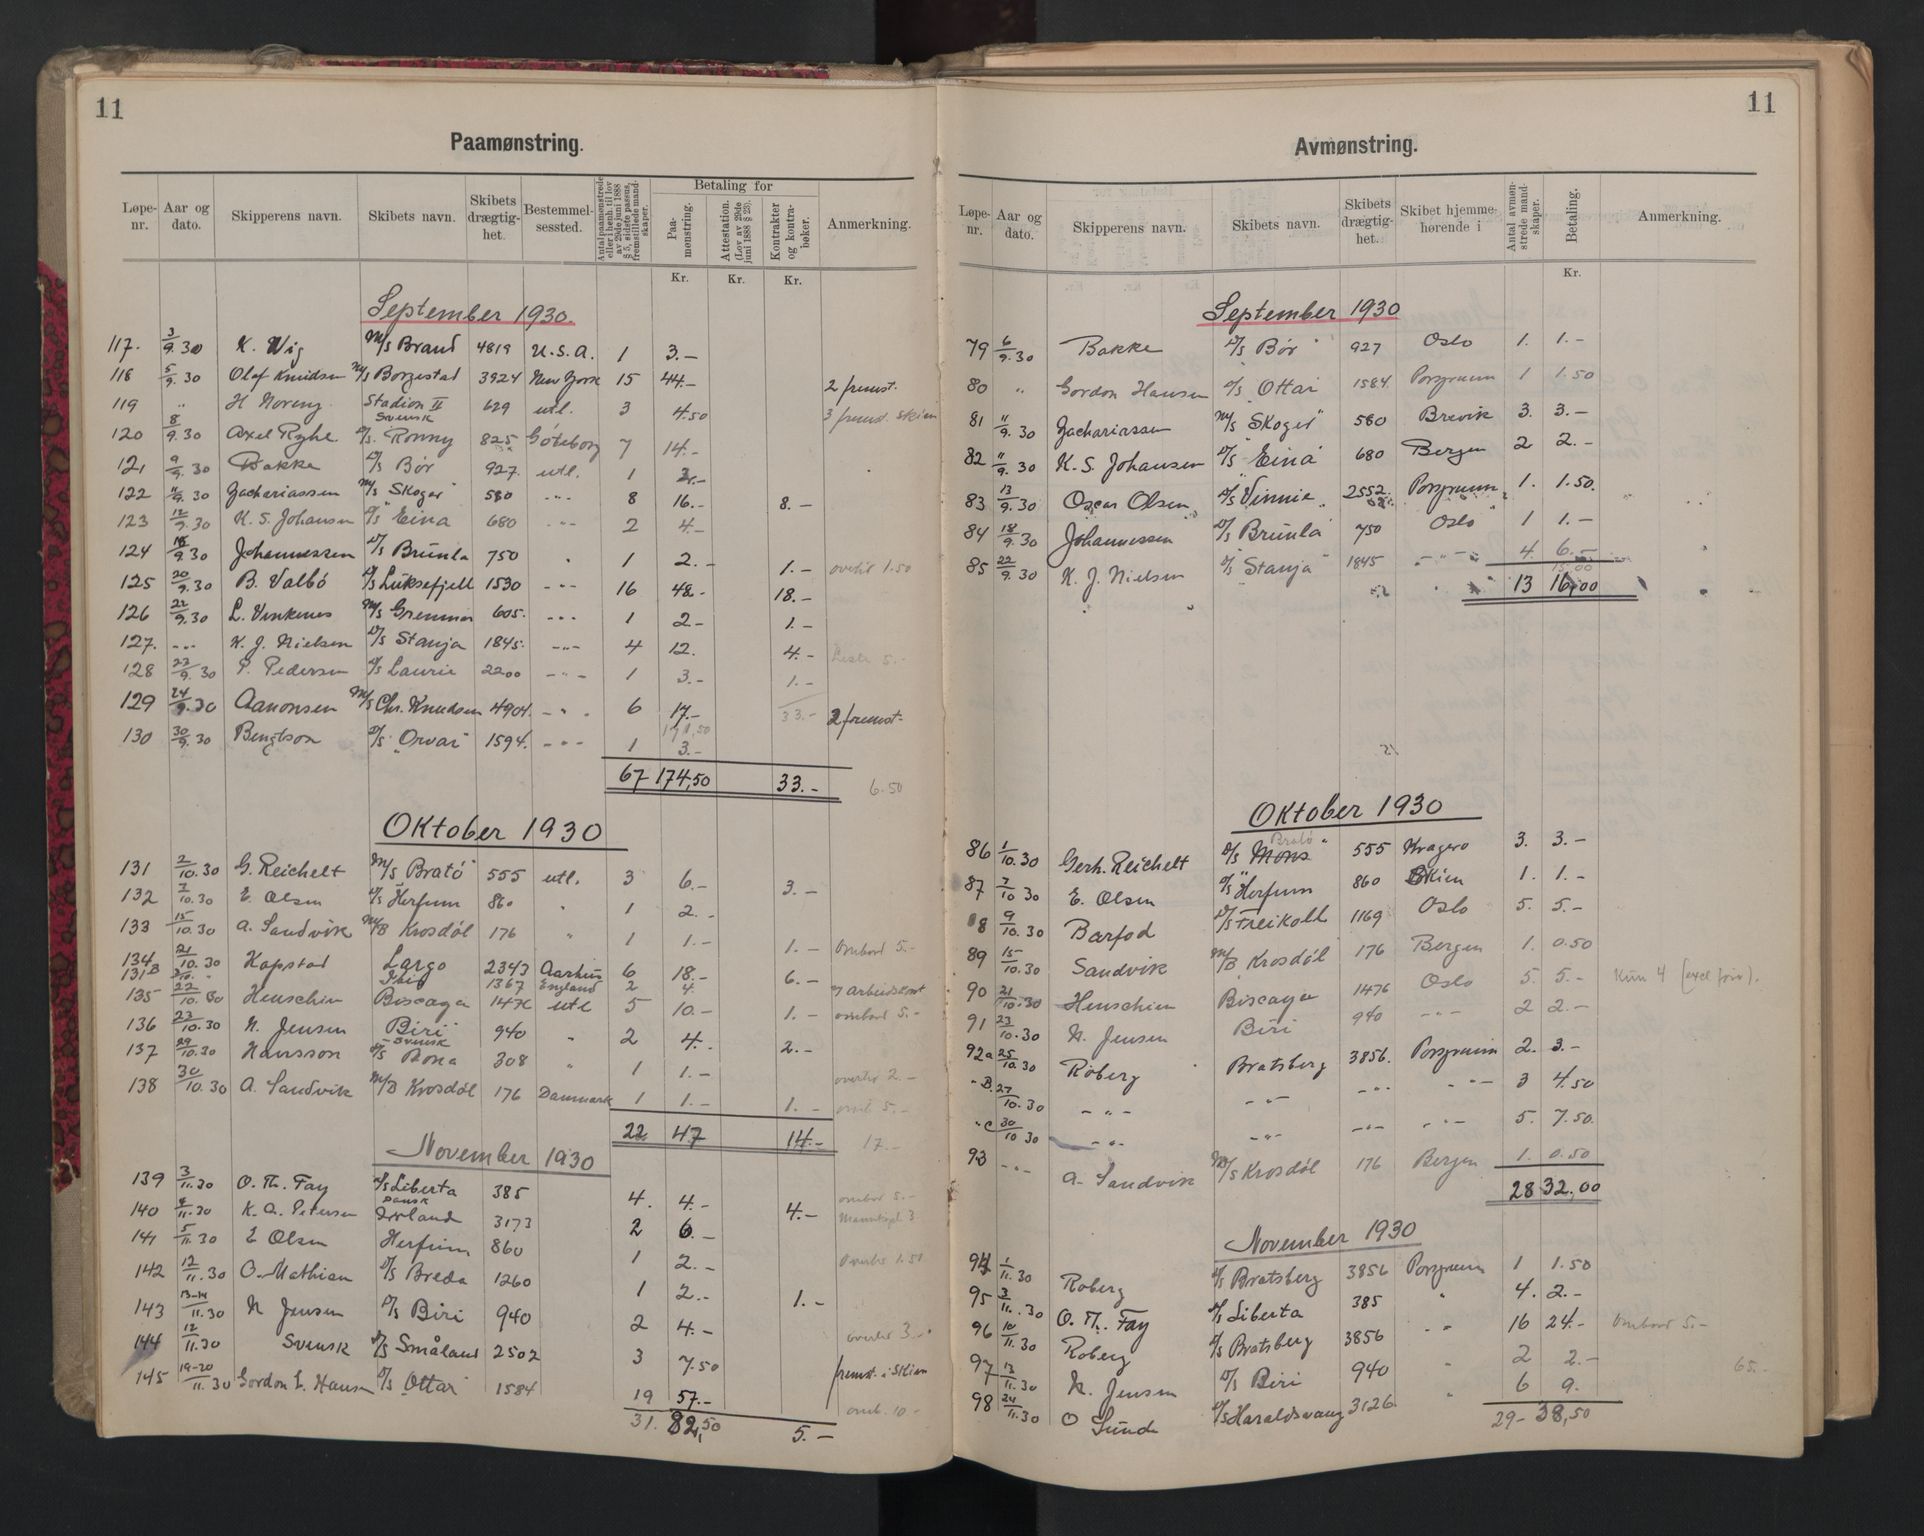 11
Paamønstring.
Løpe-nr. Aar og dato. Skipperens navn. Skibets navn. Skibets drægtighet. Bestemmelsessted. Antal paamønstrede eller i henh. til lov av 29de juni 1888 § 5, sidste passus, fremstillede mandskaper. Betaling for Paamønstring. Attestation. (Lov av 29de juni 1888 § 23). Kontrakter og kontrabøker. Anmerkning.
Kr. Kr. Kr.
September 1930.
117. 3/9.30 K. Wig M/S Brand 4819 U.S.A. 1 3.-
118 5/9.30 Olaf Knudsen M/S Borgestad 3924 New York 15 44.- 2 fremst.
119 " H Noreng Stadion II 629 utl. 3 4.50 3 fremst. Skien
120 8/9.30 Axel Ryhe Svensk S/S Ronny 825 Göteborg 7 14.-
121 9/9.30 Bakke D/S Bør 927. utl. 1 2.-
122 11/9.30 Zachariassen M/S "Skoger" 580 -"- 8 16.- 8.-
123 12/9.30 K. S. Johansen D/S Eina 680 -"- 2 4.-
124 18/9.30 Johannessen D/S Brunla 750 " 1 2.- 1.- overtid 1.50
125 20/9.30 B. Valbö D/S Luksefjell 1530 -"- 16 48.- 18.-
126 22/9.30 L. M/S Gremmar 605. -"- 1 2.- 1.-
127. -"- K. J. Nielsen D/S Stanja 1845. -"- 4 12. 4.- 5.-
128 22/9.30 P. Pedersen D/S Laurie 2200 -"- 1 3.- 1.-
129 24/9.30 Aanonsen M/S Chr. Knudsen 4904. -"- 6 17.- 33.- 2 fremst.
130 30/9.30 Bengtson D/S "Orvar" 1594. -"- 1 3.-
67 174,50 33.- 6.50
Oktober 1930
131 2/10.30 G. Reichelt M/S "Bratö" 555 utl. 3 6.- 3.-
132 7/10.30 E. Olsen D/S Herfum 860 " 1 2.-
133 15/10.30 A. Sandvik M/B Krosdöl 176 " 1 1.- 1.- Ombord 5.-
134 21/10.30 Kopstad Largo 2343 Aarhus 6 18.- 6.-
131B 1367 England 2 4.
135 22/10.30 Henschien Biscaya 1476 utl 5 10.- 1.- ombord 5.-
136 23/10.30 N. Jensen "Biri" 940 " 2 4.- 2.-
137 29/10.30 Hansson Svensk S/S Rona 308 " 1 1.- overtid 2.-
138 30/10.30 A. Sandvik M/B Krosdöl 176 Danmark 1 1.- 1.- 5.-
22 47 14.- 17.-
November 1930
139 3/11.30 O. Th. Fay D/S Liberta 385 4. 4.- 4.- ombord 5.-
140 4/11.30 K. A. Petersen Dansk 3173 2 6.-
141 5/11.30 E Olsen Herfum 860 1 2.- Overtid 1.50
142 12/11.30 O. Mathisen D/S Breda 1260 1 2.- 1.-
143 13-14/11.30 N Jensen D/S Biri 940 2 4.- overtid 3.-
144 12/11.30 Svensk S/S Småland 2502 3 7.50 fremst. i Skien
145 19-20/11.30 Gordon E. Hansen D/S Ottar 1584 19 57.- omb. 10.-
31. 82,50 5.-
11
Avmønstring.
Løpe-nr. Aar og dato. Skipperens navn. Skibets navn. Skibets drægtighet. Skibet hjemmehørende i Antal avmønstrede mandskaper. Betaling. Anmerkning.
Kr.
September 1930
79 6/9.30 Bakke D/S "Bør" 927 Oslo 1. 1.-
80 " Gordon Hansen D/S "Ottar" 1584. Porsgrunn 1 1.50
81 11/9.30 Zachariassen M/S "Skoger" 580 Brevik 3. 3.-
82 11/9.30 K. S. Johansen D/S "Eina" 680 Bergen 2 2.-
83 13/9.30 Oscar Olsen D/S "Vinnie" 2552. Porsgrunn 1. 1.50.
84 18/9.30 Johannessen D/S "Brunla" 750 Oslo 1 1.-
85 22/9.30 K. J. Nielsen D/S "Stanja" 1845 -"- 4. 6.-
15.00
13 16,00
Oktober 1930
86 1/10.30 Gerh. Reichelt D/S Mons Bratö 555 Kragerø 3. 3.-
87 7/10 30 E. Olsen D/S "Herfum 860 Skien 1. 1.-
88 9/10.30 Barfod D/S Freikoll 1169 Oslo 5. 5.-
89 15/10.30 Sandvik M/B Krosdöl 176 Bergen 1. 0.50
90 21/10.30 Henschien Biscaya 1476 Oslo 5. 5.- Kun 4
91 23/10.30 N. Jensen Biri 940 -"- 2 2.-
92a 25/10.30 Roberg Bratsberg 3856. Porsgrunn 2. 3.-
"B. 27/10.30 -"- -"- -"- -"- 3 4.50
"c 30/10 30 -"- -"- -"- -"- 5. 7.50.
93 -"- A. Sandvik M/S Krosdöl 176 Bergen 1. 0.50
28 32,00
November 1930
94 1/11.30 Roberg D/S Bratsberg 3856 Porsgrunn 1 1.50
95 3/11.30 O. Th. Fay D/S Liberta 385 " 4. 2.-
96 10/11.30 Roberg D/S Bratsberg 3856 -"- 16 24.- Ombord 5.-
97 13/11.30 N. Jensen D/S Biri 940 " 2 2.- 65.-
98 24/11.30 O Sunde D/S Haraldsvang 3126 " 6 9.
29- 38,50